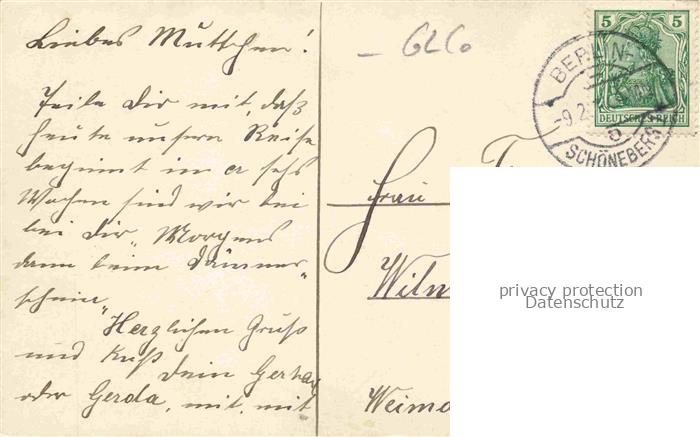 Liebes Muttchen!
Teile Dir mit, daß
heute unsere Reise
beginnt in ca sechs
Wochen sind wir bei
bei Dir „Morgens
dann beim Dämmer-
schein"
Herzlichen Gruß
und Kuß
Dein
oder Gerda, mit, mit
GLCo
5 5
DEUTSCHES REICH
BERLIN-
-9.2.
SCHÖNEBERG
Frau
Wilm
Weima
privacy protection
Datenschutz